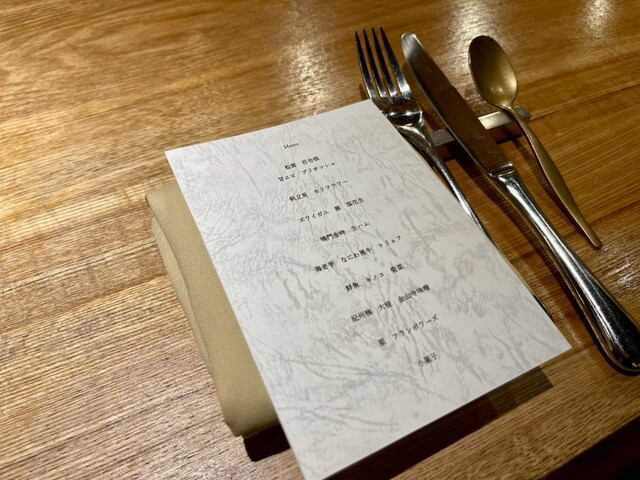 Menu
松茸 百合根
甘エビ ブリオッシュ
帆立貝 カリフラワー
ズワイガニ 柿 落花生
鳴門金時 生ハム
海老芋 なにわ黒牛 トリュフ
鮮魚 キノコ 春菜
紀州鴨 大根 金山寺味噌
栗 フランボワーズ
小菓子